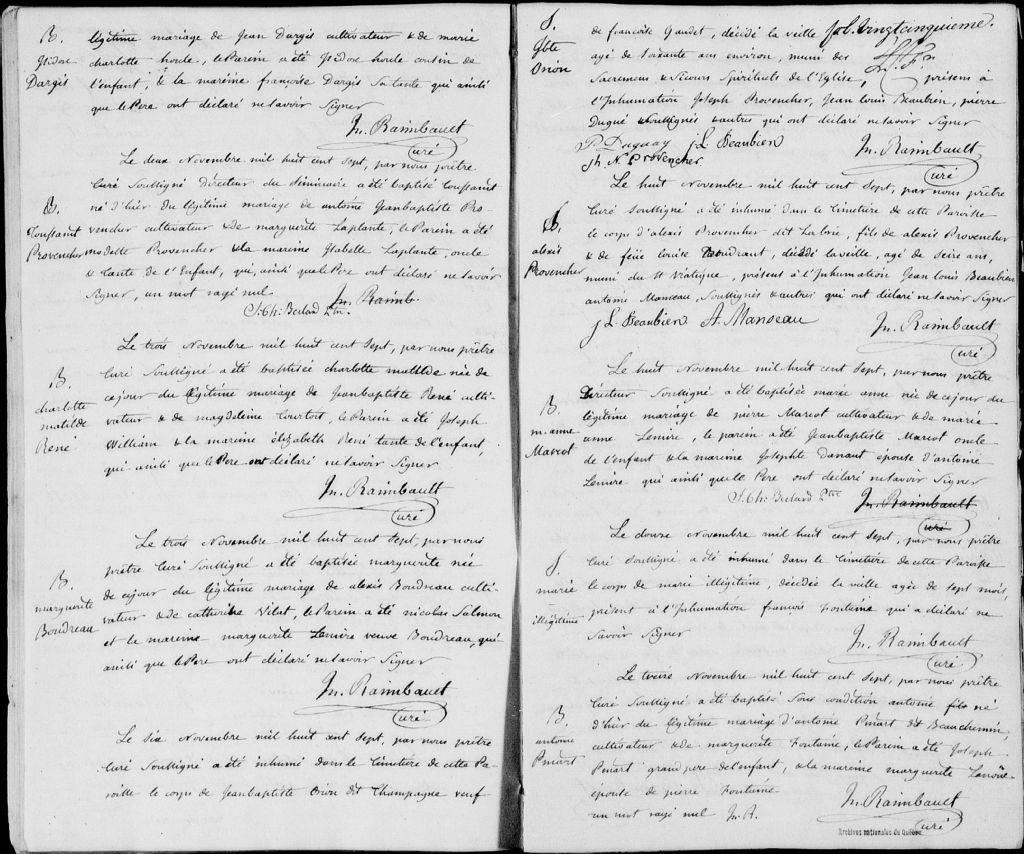 B. légitime mariage de Jean Dargis cultivateur & de marie
Isidore charlotte houle, le Parein a été Isidore houle cousin de
Dargis l'enfant, & la mareine françoise Dargis sa tante qui ainsi
que le Pere ont déclaré ne savoir signer
Jn. Raimbault
curé
Le deux Novembre mil huit cent sept, par nous prêtre
Curé Soussigné Directeur du séminaire a été baptisé toussaint
B. né d'hier du légitime mariage de antoine Jeanbaptiste Pro-
Toussaint vencher cultivateur & de marguerite Laplante, le Parein a été
Provencher modeste Provencher & la mareine Isabelle Laplante, oncle
& tante de l'Enfant, qui, ainsi que le Pere ont déclaré ne savoir
signer, un mot rayé nul Jn. Raimb.
Le trois Novembre mil huit cent sept, par nous prêtre
B. Curé Soussigné a été baptisée charlotte matilde née de
charlotte ce jour du légitime mariage de Jeanbaptiste René culti-
matilde vateur & de magdeleine Courtois, le Parein a été Joseph
René William & la mareine élizabeth René tante de l'enfant,
qui ainsi que le Pere ont déclaré ne savoir signer
Jn. Raimbault
curé
Le trois Novembre mil huit cent sept, par nous
prêtre Curé Soussigné a été baptisée marguerite née
B. de ce jour du légitime mariage de alexis Boudreau culti-
marguerite vateur & de catherine Vilat, le Parein a été nicolas Salmon
Boudreau et la mareine marguerite Lemire veuve Boudreau, qui
ainsi que le Pere ont déclaré ne savoir signer
Jn. Raimbault
curé
Le six Novembre mil huit cent sept, par nous prêtre
Curé Soussigné a été inhumé dans le Cimetière de cette Pa-
roisse le corps de Jeanbaptiste Orion dit Champagne veuf
S. de françoise Gaudet, décédé la veille fol. vingtcinquieme.
Jbte agé de soixante ans environ, muni des
Orion Sacremens & Secours Spirituels de l'Eglise, présens à
l'Inhumation Joseph Provencher, Jean Louis Beaubien, pierre
Dugué Soussignés & autres qui ont déclaré ne savoir signer
P. Duguay J L Beaubien Jn. Raimbault
Jh. N. Provencher curé
Le huit Novembre mil huit cent sept, par nous prêtre
Curé Soussigné a été inhumé dans le Cimetière de cette Paroisse
S. le corps d'alexis Provencher dit Labrie, fils de alexis Provencher
alexis & de feüe louise décédé la veille, agé de seize ans,
Provencher muni du St Viatique, présens à l'Inhumation Jean Louis Beaubien
antoine Manseau, Soussignés & autres qui ont déclaré ne savoir signer
J L. Beaubien A. Manseau Jn. Raimbault
curé
Le huit Novembre mil huit cent sept, par nous prêtre
Directeur Soussigné a été baptisée marie anne née de ce jour du
B. légitime mariage de pierre Marcot cultivateur & de marie
m. anne anne Lemire, le parein a été Jeanbaptiste Marcot oncle
Marcot de l'enfant & la mareine Josephte Danaut épouse d'antoine
Lemire qui ainsi que le Pere ont déclaré ne savoir signer
Jn. Raimbault
curé
Le douze Novembre mil huit cent sept, par nous prêtre
S. Curé Soussigné a été inhumé dans le Cimetière de cette Paroisse
marie le corps de marie illégitime, décédée la veille agée de sept mois,
illégitime présent à l'Inhumation françois Fontaine qui a déclaré ne
savoir signer Jn. Raimbault
curé
Le treize Novembre mil huit cent sept, par nous prêtre
Curé Soussigné a été baptisé sous condition antoine fils né
B. d'hier du légitime mariage d'antoine Pinart dit Beauchemin,
antoine cultivateur & de marguerite Fontaine, le Parein a été Joseph
Pinart Pinart grand pere de l'enfant, & la mareine marguerite
epouse de pierre Fontaine Jn. Raimbault
un mot rayé nul Jn. R. curé
Archives nationales du Québec